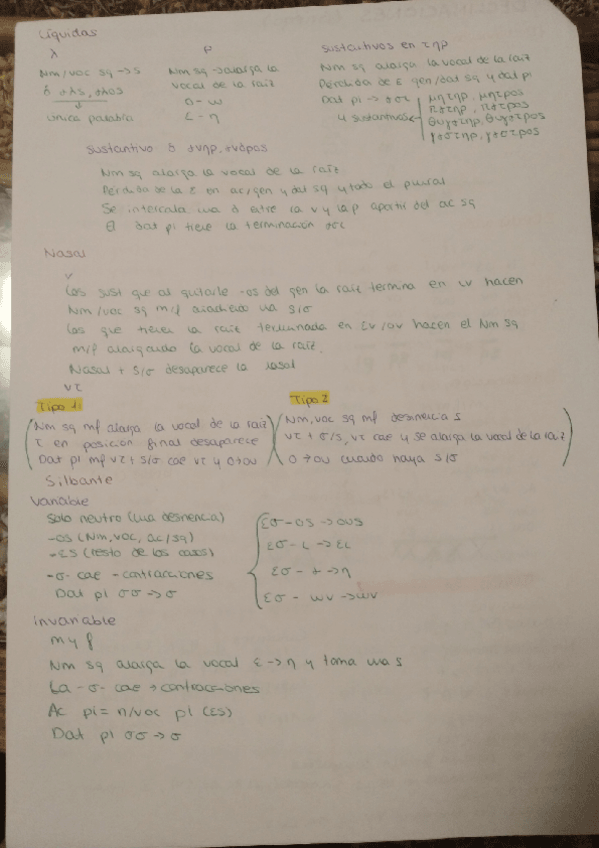 Líquidas
λ
Nm/voc sg → s
ὁ ἁλς, αλος
↓
única palabra
ρ
Nm sg → alarga la
vocal de la raíz
o - ω
ε - η
sustantivos en τηρ
Nm sg alarga la vocal de la raíz
Pérdida de ε gen/dat sg y dat pl
Dat pl → ασι
4 sustantivos
μητηρ, μητρος
πατηρ, πατρος
θυγατηρ, θυγατρος
γαστηρ, γαστρος
sustantivo ὁ ανηρ, ανδρος
Nm sg alarga la vocal de la raíz
Pérdida de la ε en ac/gen y dat sg y todo el plural
Se intercala una δ entre la ν y la ρ apartir del ac sg
El dat pl tiene la terminación ασι
Nasal
ν
Los sust que al quitarle -os del gen la raíz termina en ιν hacen
Nm/voc sg m/f añadiendo una s/σ
Los que tienen la raíz terminada en εν/ον hacen el Nm sg
m/f alargando la vocal de la raíz.
Nasal + s/σ desaparece la nasal
ντ
Tipo 1:
Nm sg mf alarga la vocal de la raíz
τ en posición final desaparece
Dat pl mf ντ + s/σ cae ντ y o→ου
Tipo 2
Nm, voc sg mf desinencia s
ντ + σ/s, ντ cae y se alarga la vocal de la raíz
o→ου cuando haya s/σ
Silbante
variable
Solo neutro (una desinencia)
-os (Nm, voc, ac/sg)
-εs (resto de los casos)
-σ- cae - contracciones
Dat pl σσ → σ
εσ - os → ous
εσ - ι → ει
εσ - α → η
εσ - ων → ων
invariable
m y f
Nm sg alarga la vocal ε → η y toma una s
La -σ- cae → contracciones
Ac pl = n/voc pl (εs)
Dat pl σσ → σ